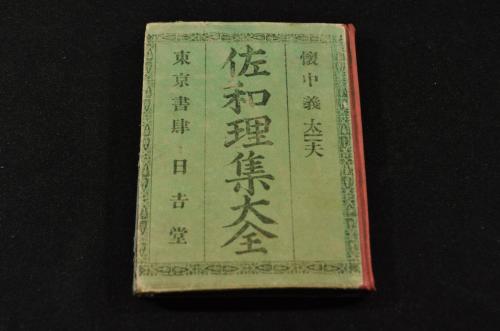 懐中義太夫
佐和理集大全
東京書肆 日吉堂